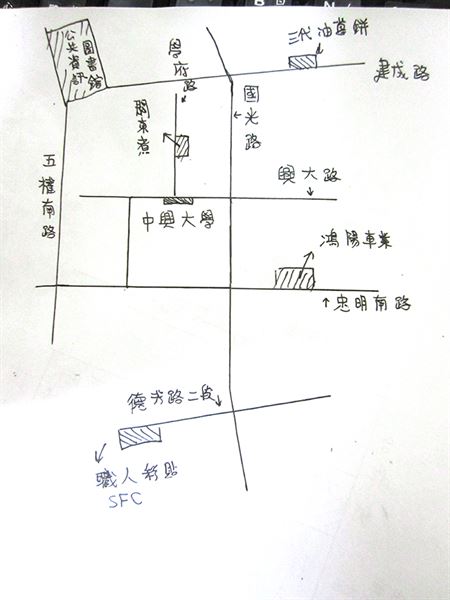 三代油蔥餅
建成路
公共資訊
圖書館
學府路
國光路
關東煮
五權南路
興大路
中興大學
鴻陽車業
忠明南路
德芳路二段
職人彩貼
SFC